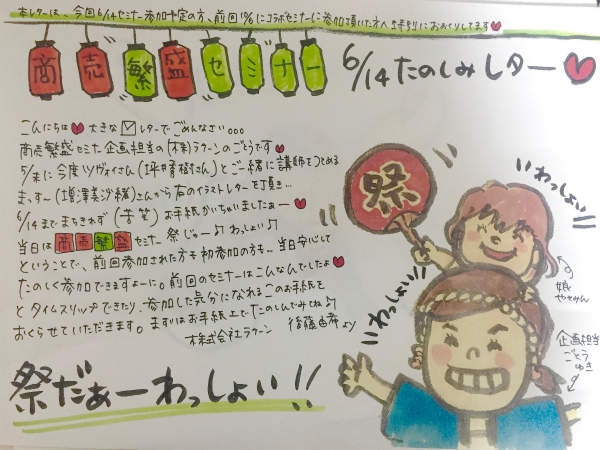 本レターは、今回6/14セミナー参加予定の方、前回 にコラボセミナーに参加頂いた方へ特別におおくりしてます
商売繁盛セミナー
6/14たのしみレター
こんにちは 大きな レターでごめんなさい。。。
商売繁盛セミナ企画担当の(株)ラクーンのごとうです
5/末に今度ツヴァイさん(坪井秀樹さん)とご一緒に講師をつとめる
まっすー(増澤美沙緒)さんから右のイラストレターを頂き…
6/14までまちきれず(苦笑)お手紙かいちゃいましたぁー
当日は商売繁盛セミナー祭じゃー♪わっしょい♪
ということで、前回参加された方も初参加の方も…当日安心して
たのしく参加できますよーに。前回のセミナーはこんなんでしたよ
とタイムスリップできたり、参加した気分になれるこのお手紙を
おくらせていただきます。まずはお手紙上でたのしんでみてね♪
株式会社ラクーン 後藤 より
祭だぁーわっしょい!!
祭
わっしょい!!
わっしょい!!
娘
企画担当
ごとう
ゆき